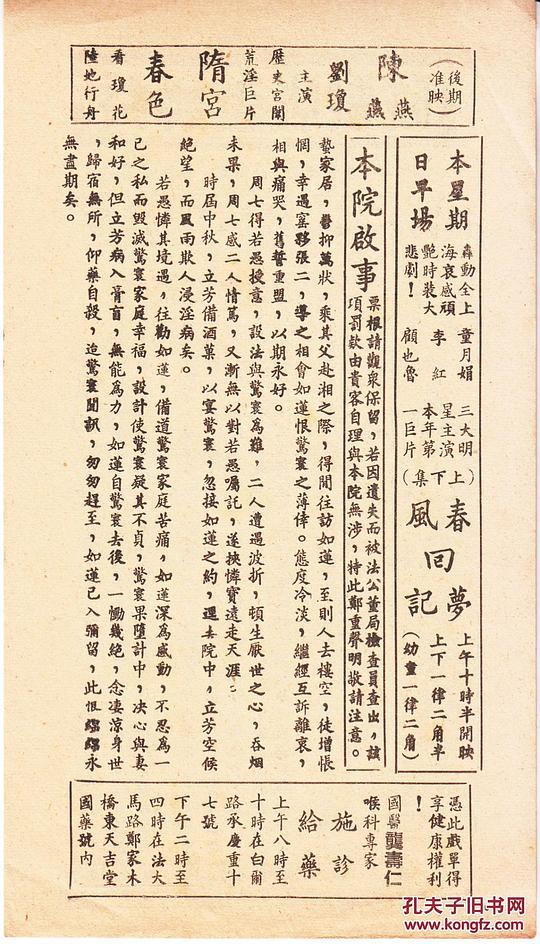 （後期准映）
陳燕燕
劉瓊
主演
歷史宮闈
荒淫巨片
隋宮
春色
看瓊花
陸地行舟
本星期
日早場
轟動全上
海哀感頑
艷時裝大
悲劇！
童月娟
李紅
顧也魯
三大明
星主演
本年第
一巨片
（上下集）
春風
回
夢記
上午十時半開映
上下一律二角半
（幼童一律二角）
本院啟事
票根請觀衆保留，若因遺失而被法公董局檢查員查出，該
項罰欵由貴客自理與本院無涉，特此鄭重聲明敬請注意。
蟄家居，鬱抑萬狀，乘其父赴湘之際，得間往訪如蓮，至則人去樓空，徒增悵
惘，幸遇窰夥張二，導之相會如蓮恨驚寰之薄倖。態度冷淡，繼經互訴離衷，
相與痛哭，舊誓重盟，以期永好。
周七得若愚授意，設法與驚寰為難，二人遭遇波折，頓生厭世之心，吞烟
未果，周七感二人情篤，又漸無以對若愚囑託，遂挾憐寶遠走天涯：
時屆中秋，立芳備酒菓，以宴驚寰，忽接如蓮之約，逕去院中，立芳空候
絕望，而風雨欺人浸淫病矣。
若愚憐其境遇，往勸如蓮，備道驚寰家庭苦痛，如蓮深為感動，不忍為一
己之私而毀滅驚寰家庭幸福，設計使驚寰疑其不貞，驚寰果墮計中，决心與妻
和好，但立芳病入膏肓，無能為力，如蓮自驚寰去後，一慟幾絕，念凄涼身世
，歸宿無所，仰藥自殺，迨驚寰聞訊，匆匆趕至，如蓮已入彌留，此恨綿綿永
無盡期矣。
憑此戲單得
享健康權利
！
國醫龔壽仁
喉科專家
施診
給藥
上午八時至
十時在白爾
路承慶重十
七號
下午二時至
四時在法大
馬路鄭家木
橋東天吉堂
國藥號內
孔夫子旧书网
www.kongfz.com